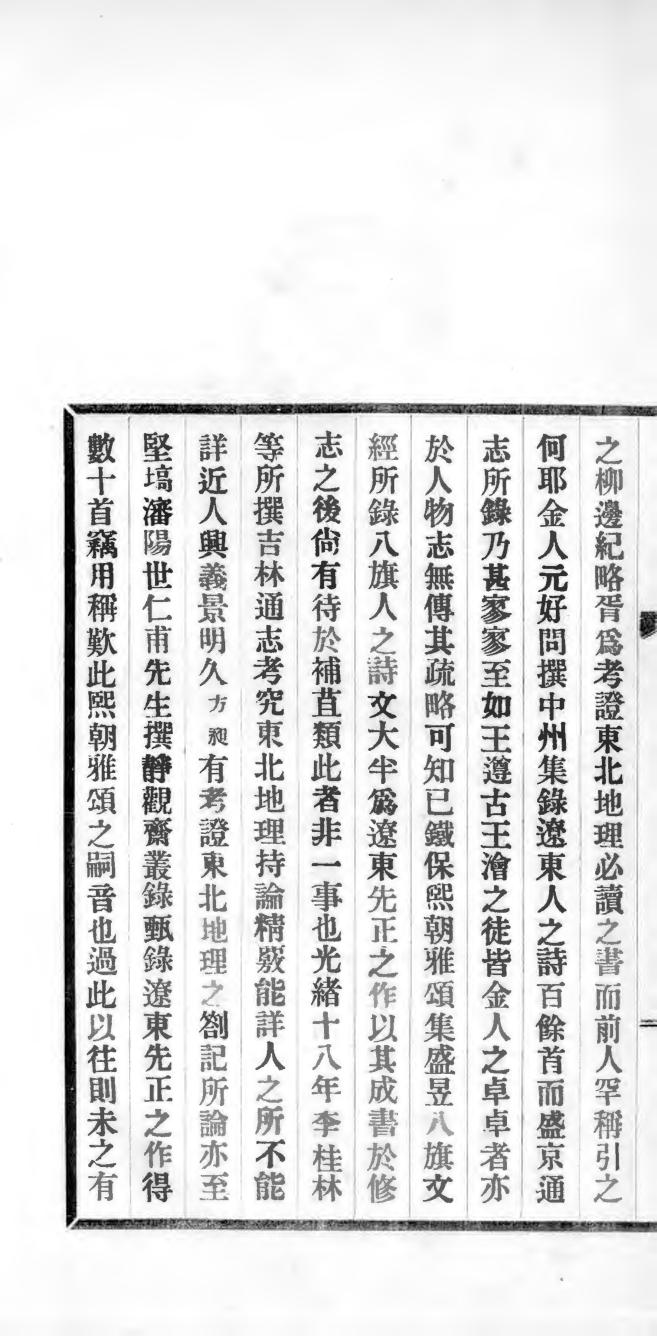 之柳邊紀略胥爲考證東北地理必讀之書而前人罕稱引之
何耶金人元好問撰中州集錄遼東人之詩百餘首而盛京通
志所錄乃甚寥寥至如王遵古王澮之徒皆金人之卓卓者亦
於人物志無傳其疏略可知已鐵保熙朝雅頌集盛昱八旗文
經所錄八旗人之詩文大半爲遼東先正之作以其成書於修
志之後尙有待於補苴類此者非一事也光緒十八年李桂林
等所撰吉林通志考究東北地理持論精覈能詳人之所不能
詳近人興義景明久方昶有考證東北地理之劄記所論亦至
堅塙瀋陽世仁甫先生撰靜觀齋叢錄甄錄遼東先正之作得
數十首竊用稱歎此熙朝雅頌之嗣音也過此以往則未之有